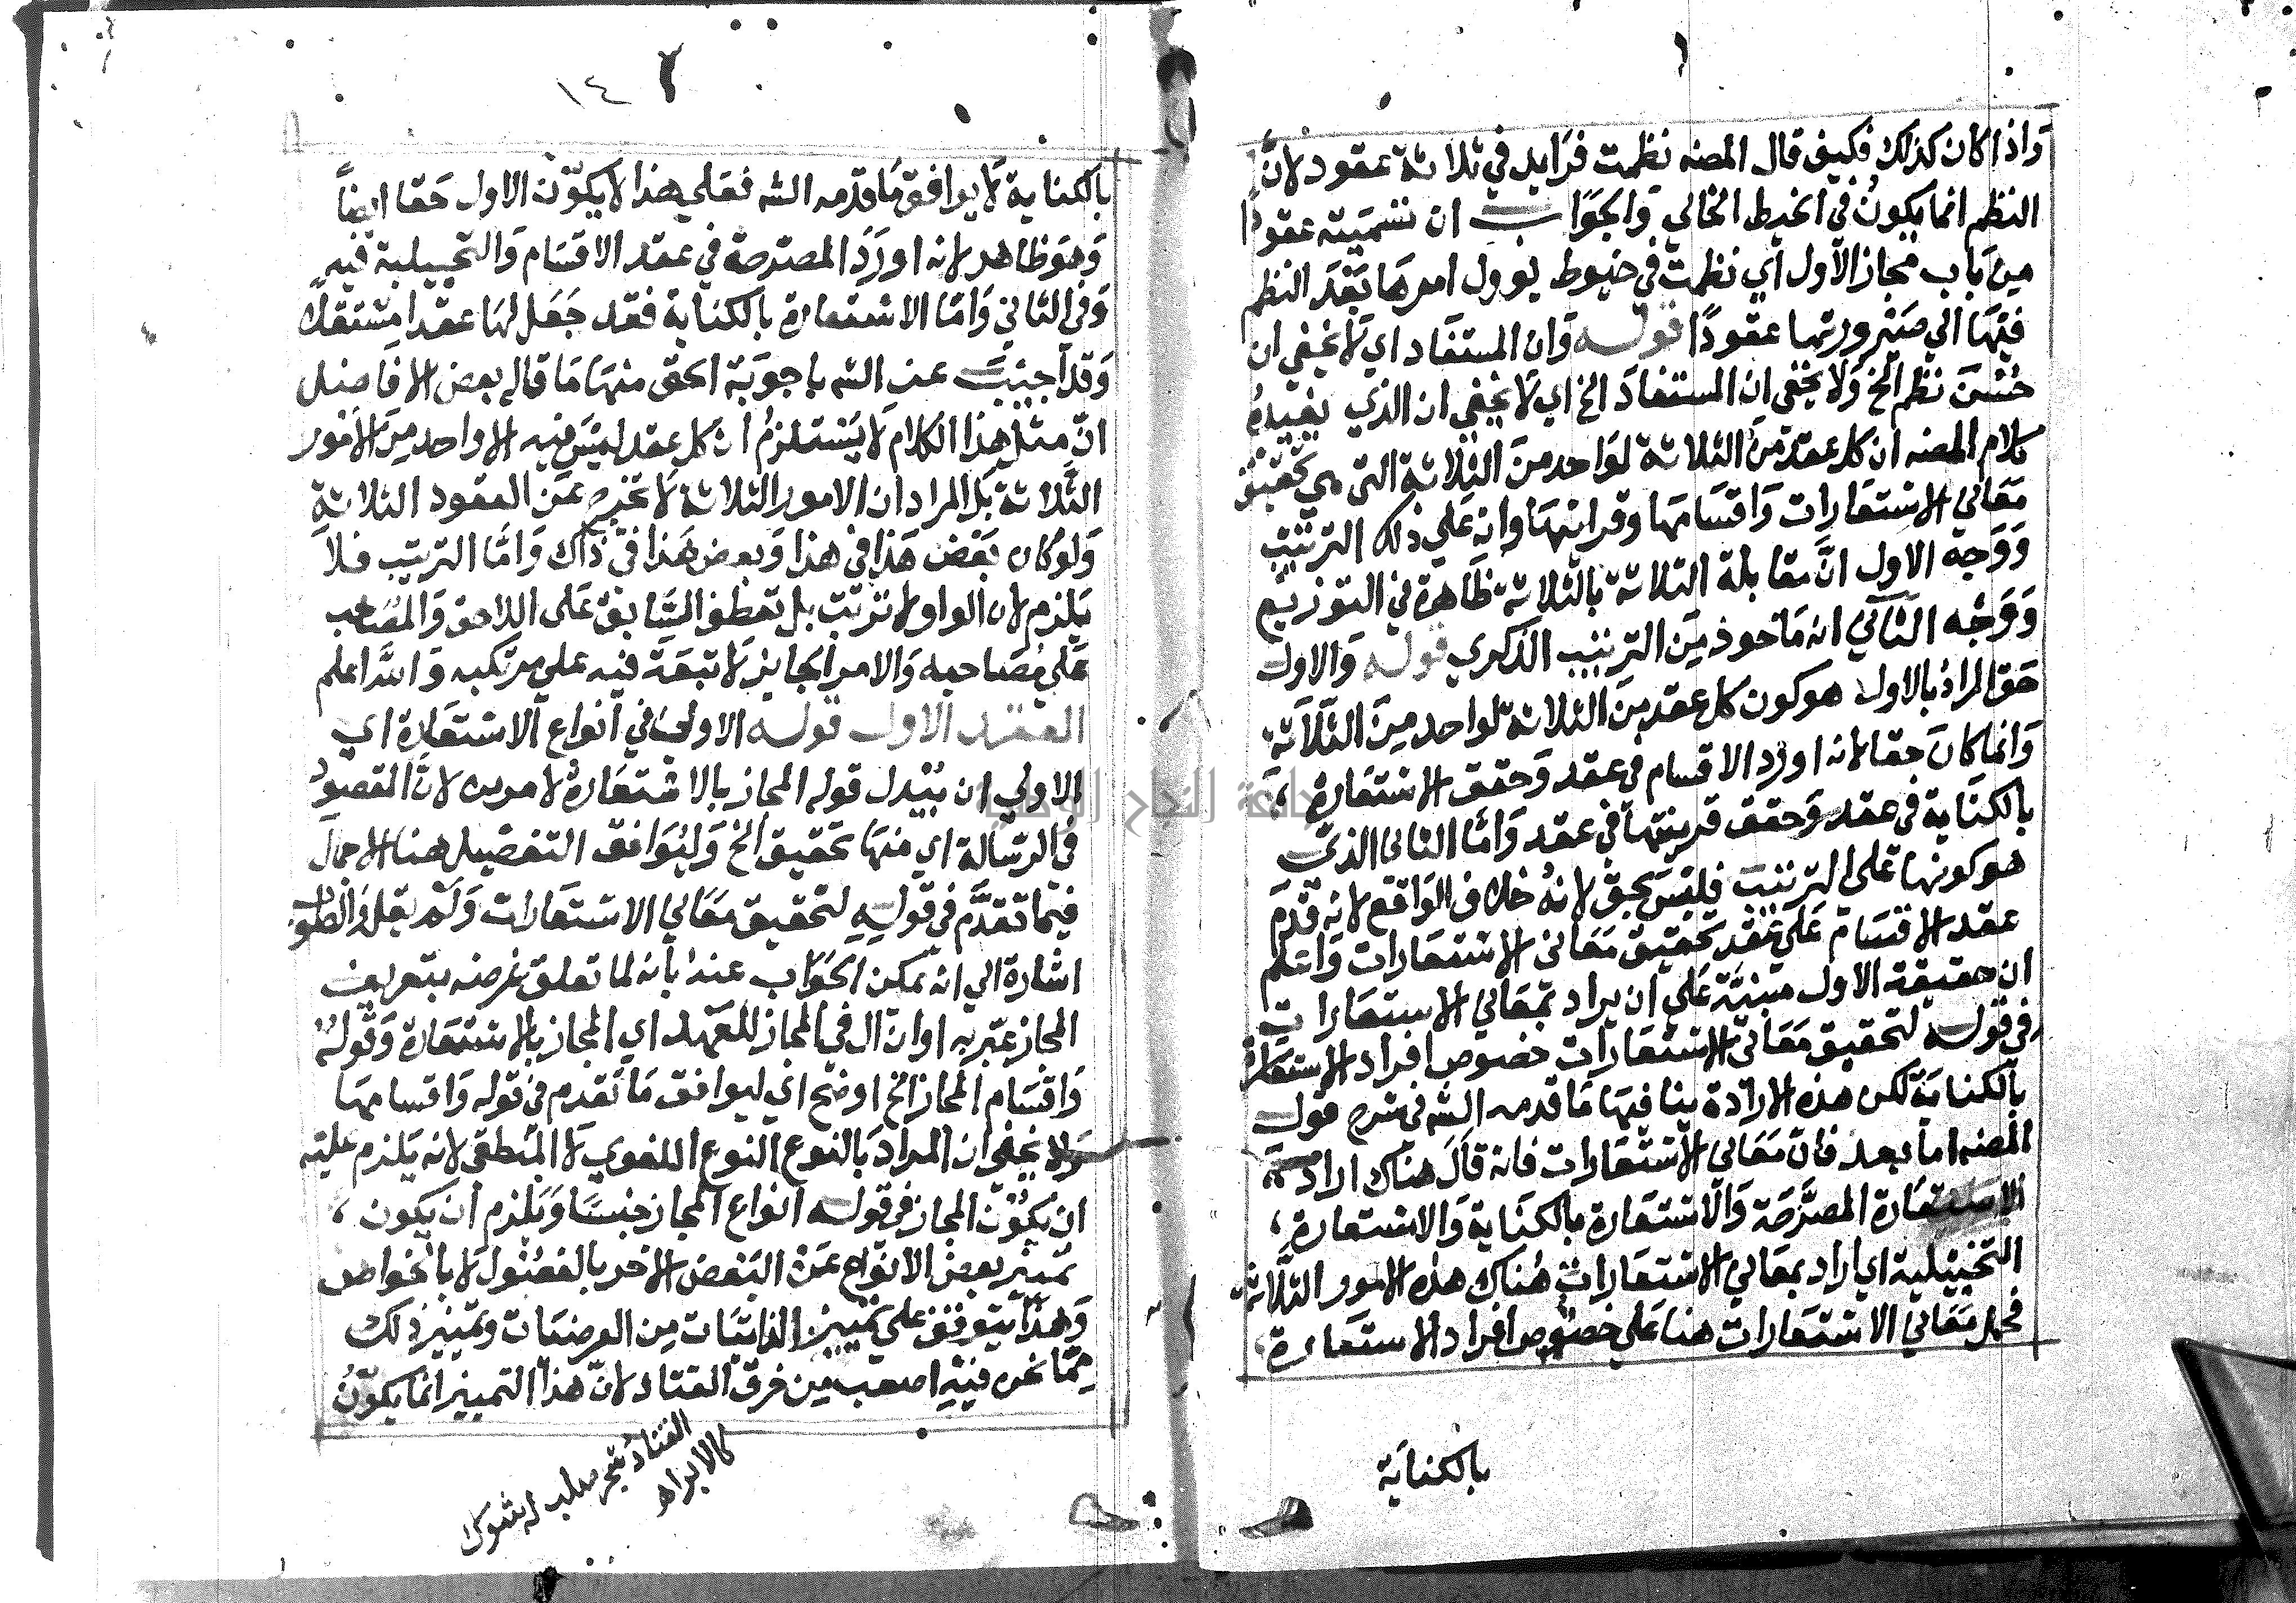 واذا كان كذلك فكيف قال المصنه نظمت فرايد في ثلاثة عقود لانّ
النظم انما يكون في الخيط الخالي والجواب ان تسميته عقودًا
من باب مجاز الأول أي نظمت في خيوط يوول امرها بعد النظم
فيها الي صيرورتها عقودًا قوله وان المستفاد اي لا يخفي ان
حسن نظم الخ ولا يخفي ان المستفاد الخ اي لا يخفي ان الذي يفيده
كلام المصنه ان كل عقد من الثلاثة لواحد من الثلاثة التي هي تحقيق
معاني الاستعارات واقسامها وقرائنها وانه علي ذلك الترتيب
ووجه الاول انّ مقابلة الثلاثة بالثلاثة ظاهرة في التوزيع
ووجه الثاني انه ماخوذ من الترتيب الذكري قوله والاول
حق المراد بالاول هو كون كل عقد من الثلاثة لواحد من الثلاثة
وانما كان حقا لانه اورد الاقسام في عقد وحقق الاستعارة
بالكناية في عقد وحقق قرينتها في عقد واما الثاني الذي
هو كونها علي الترتيب فليس بحق لانه خلاف الواقع لانه قدم
عقد الاقسام علي عقد تحقيق معاني الاستعارات واعلم
ان حقيقة الاول مبنية علي ان يراد بمعاني الاستعارات
في قوله لتحقيق معاني الاستعارات خصوص افراد الاستعارة
بالكناية لكن هذه الارادة ينافيها ما قدمه الشه في شرح قول
المصنه اما بعد فان معاني الاستعارات فانه قال هناك اراد به
الاستعارة المصرّحة والاستعارة بالكناية والاستعارة
التخييلية اي اراد بمعاني الاستعارات هناك هذه الامور الثلاثة
فحمل معاني الاستعارات هنا علي خصوص افراد الاستعارة
بالكناية
١٤
بالكناية لا يوافق ما قدّمه الشه فعلي هذا لا يكون الاول حقا ايضاً
وهو ظاهر لانه اورد المصرحة في عقد الاقسام والتخييلية فيه
وفي الثاني وامّا الاستعارة بالكناية فقد جعل لها عقدا مستقلا
وقد أجيب عن الشه باجوبة الحق منها ما قاله بعض الافاضل
انّ مثل هذا الكلام لا يستلزم أن كل عقد ليس فيه الا واحد من الأمور
الثلاثة بل المراد ان الامور الثلاثة لا تخرج عن العقود الثلاثة
ولو كان بعض هذا في هذا وبعض هذا في ذاك وامّا الترتيب فلا
يلزم لان الواو لا ترتب بل تعطف السابق على اللاحق والمصاحب
علي مصاحبه والامر الجايز لا تبعة فيه علي مرتكبه والله اعلم
العقد الاول قوله الاول في أنواع الاستعارة اي
الاولي ان يُبْدل قوله المجاز بالاستعارة لامرين لانّ المقصود
في الرسالة اي منها تحقيق الخ وليوافق التفصيل هنا الاجمال
فيما تقدّم في قوله لتحقيق معاني الاستعارات ولم يقل والصواب
اشارة الي انه يمكن الجواب عنه بأنه لما تعلق غرضه بتعريف
المجاز عبّر به او انّ ال في المجاز للعهد اي المجاز بالاستعارة وقوله
واقسام المجاز الخ اوضح اي ليوافق ما تقدم في قوله واقسامها
ولا يخفي ان المراد بالنوع النوع اللغوي لا المنطقي لانه يلزم عليه
ان يكون المجاز في قوله انواع المجاز جنسا ويلزم ان يكون
تمييز بعض الانواع عن البعض الاخر بالفصول لا بالخواص
وهذا يتوقف علي تمييز الذاتيات من العرضيات وتمييز ذلك
ممّا نحن فيه اصعب من خرق القتاد لانّ هذا التمييز انما يكون
القتاد شجر صلب له شوك
كالابراه
جامعة النجاح الوطنية